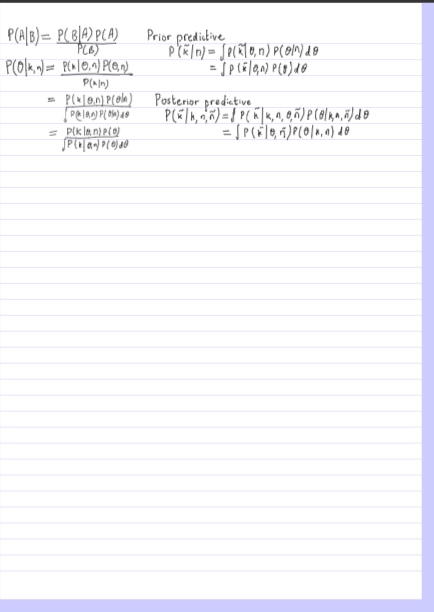 P(A|B) = P(B|A) P(A) / P(B)
P(θ|k,n) = P(k|θ,n) P(θ,n) / P(k|n)
= P(k|θ,n) P(θ|n) / ∫P(k|θ,n) P(θ|n) dθ
= P(k|θ,n) P(θ) / ∫P(k|θ,n) P(θ) dθ
Prior predictive
P(k̃|n) = ∫P(k̃|θ,n) P(θ|n) dθ
= ∫P(k̃|θ,n) P(θ) dθ
Posterior predictive
P(k̃|k,n,ñ) = ∫ P(k̃|k,n,θ,ñ) P(θ|k,n,ñ) dθ
= ∫ P(k̃|θ,ñ) P(θ|k,n) dθ